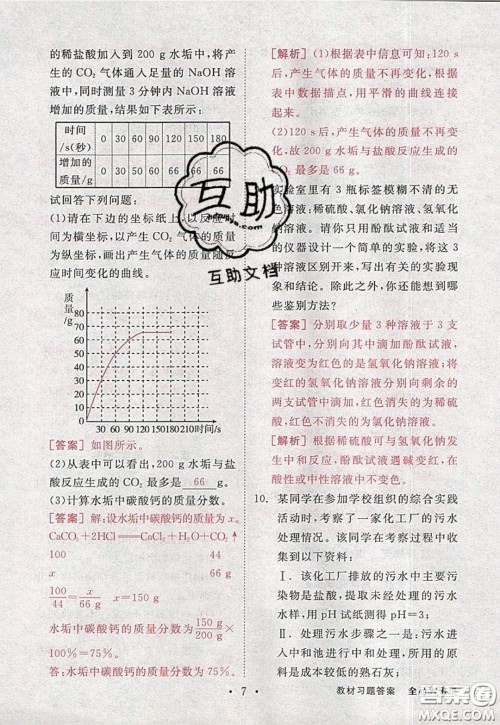 的稀盐酸加入到 200 g 水垢中,将产
生的 CO₂ 气体通入足量的 NaOH 溶
液中,同时测量 3 分钟内 NaOH 溶液
增加的质量,结果如下表所示:
时间/s(秒) 0 30 60 90 120 150 180
增加的质量/g 0 66 66
试回答下列问题:
(1)请在下边的坐标纸上,以反应时
间为横坐标,以产生 CO₂ 气体的质量
为纵坐标,画出产生气体的质量随反
应时间变化的曲线。
质量/g
80
70
60
50
40
30
20
10
0
30 60 90 120 150 180 210 时间/s
[答案] 如图所示。
(2)从表中可以看出,200 g 水垢与盐
酸反应生成的 CO₂ 最多是 66 g。
(3)计算水垢中碳酸钙的质量分数。
[答案] 解:设水垢中碳酸钙的质量为 x。
CaCO₃+2HCl══CaCl₂+H₂O+CO₂↑
100 44
x 66 g
100/44=x/66 g x=150 g
水垢中碳酸钙的质量分数为 150 g/
答:水垢中碳酸钙的质量分数为75%。
[解析] (1)根据表中信息可知:120 s
后,产生气体的质量不再变化,根据
表中数据描点,用平滑的曲线连接
起来。
(2)120 s 后,产生气体的质量不再变
化,故 200 g 水垢与盐酸反应生成的
CO₂ 最多是 66 g。
实验室里有 3 瓶标签模糊不清的无
色溶液:稀硫酸、氯化钠溶液、氢氧化
钠溶液。请利用酚酞试液和适当
的仪器设计一个简单的实验,将它
们鉴别出来,写出有关的实验现象
和结论。除此之外,你还有哪
些鉴别方法?
[答案] 分别取少量 3 种溶液于 3 支
试管中,分别向其中滴加酚酞试液,溶
液变为红色的是氢氧化钠溶液;将
变红的氢氧化钠溶液分别向剩余的
两支试管中滴加,红色消失的是稀硫
酸,红色不消失的是氯化钠溶液。
[解析] 根据稀硫酸可与氢氧化钠发
生中和反应,酚酞试液在碱性溶液中
变红色,在酸性溶液中不变色。
10. 某同学在参加学校组织的综合实践
活动时,考察了一家化工厂的污水
处理情况。该同学在考察过程中收
集到以下资料:
Ⅰ. 该化工厂排放的污水中主要污
染物是盐酸,提取未经处理的污水水
样,用 pH 试纸测得 pH=3;
Ⅱ. 污水处理步骤之一是:污水进
入中和池进行中和反应,选用的碱
是成本较低的熟石灰;
互助
互助文档
·7·
教材习题答案